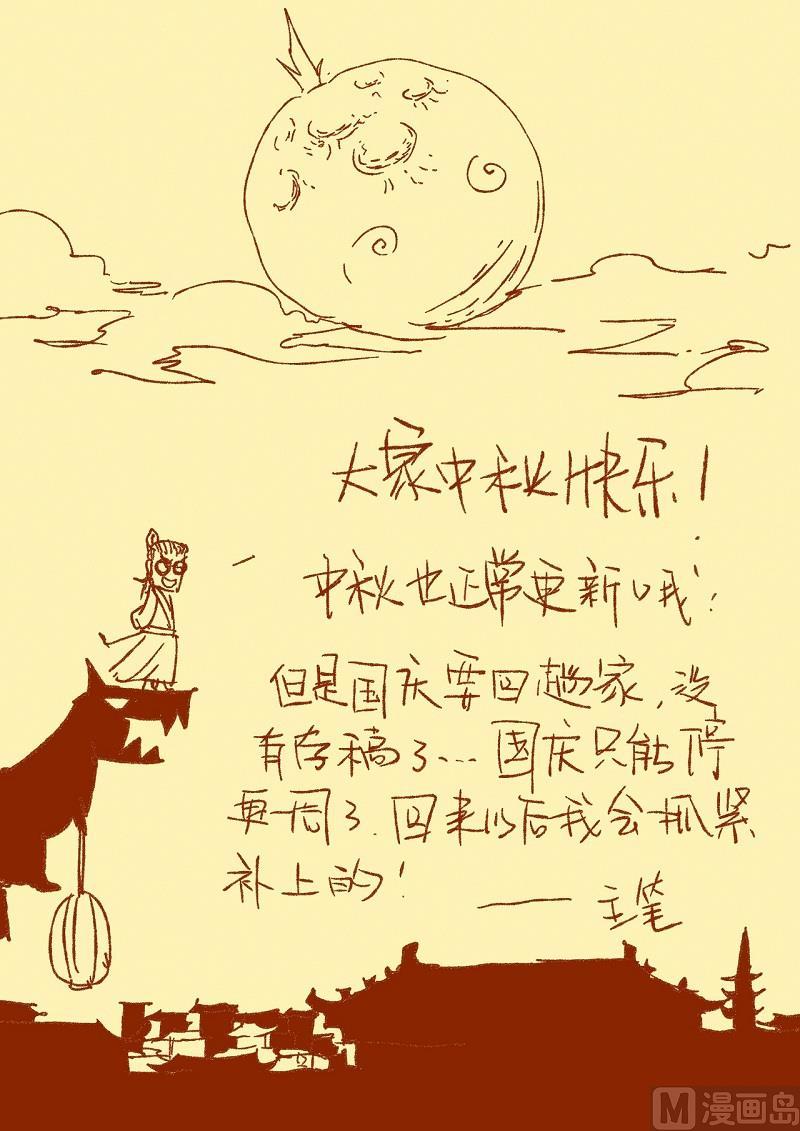 大家中秋快乐！
中秋也正常更新哦！
但是国庆要回趟家，没
有存稿了…国庆只能停
更一周了．回来以后我会抓紧
补上的！
—— 主笔
M漫画岛